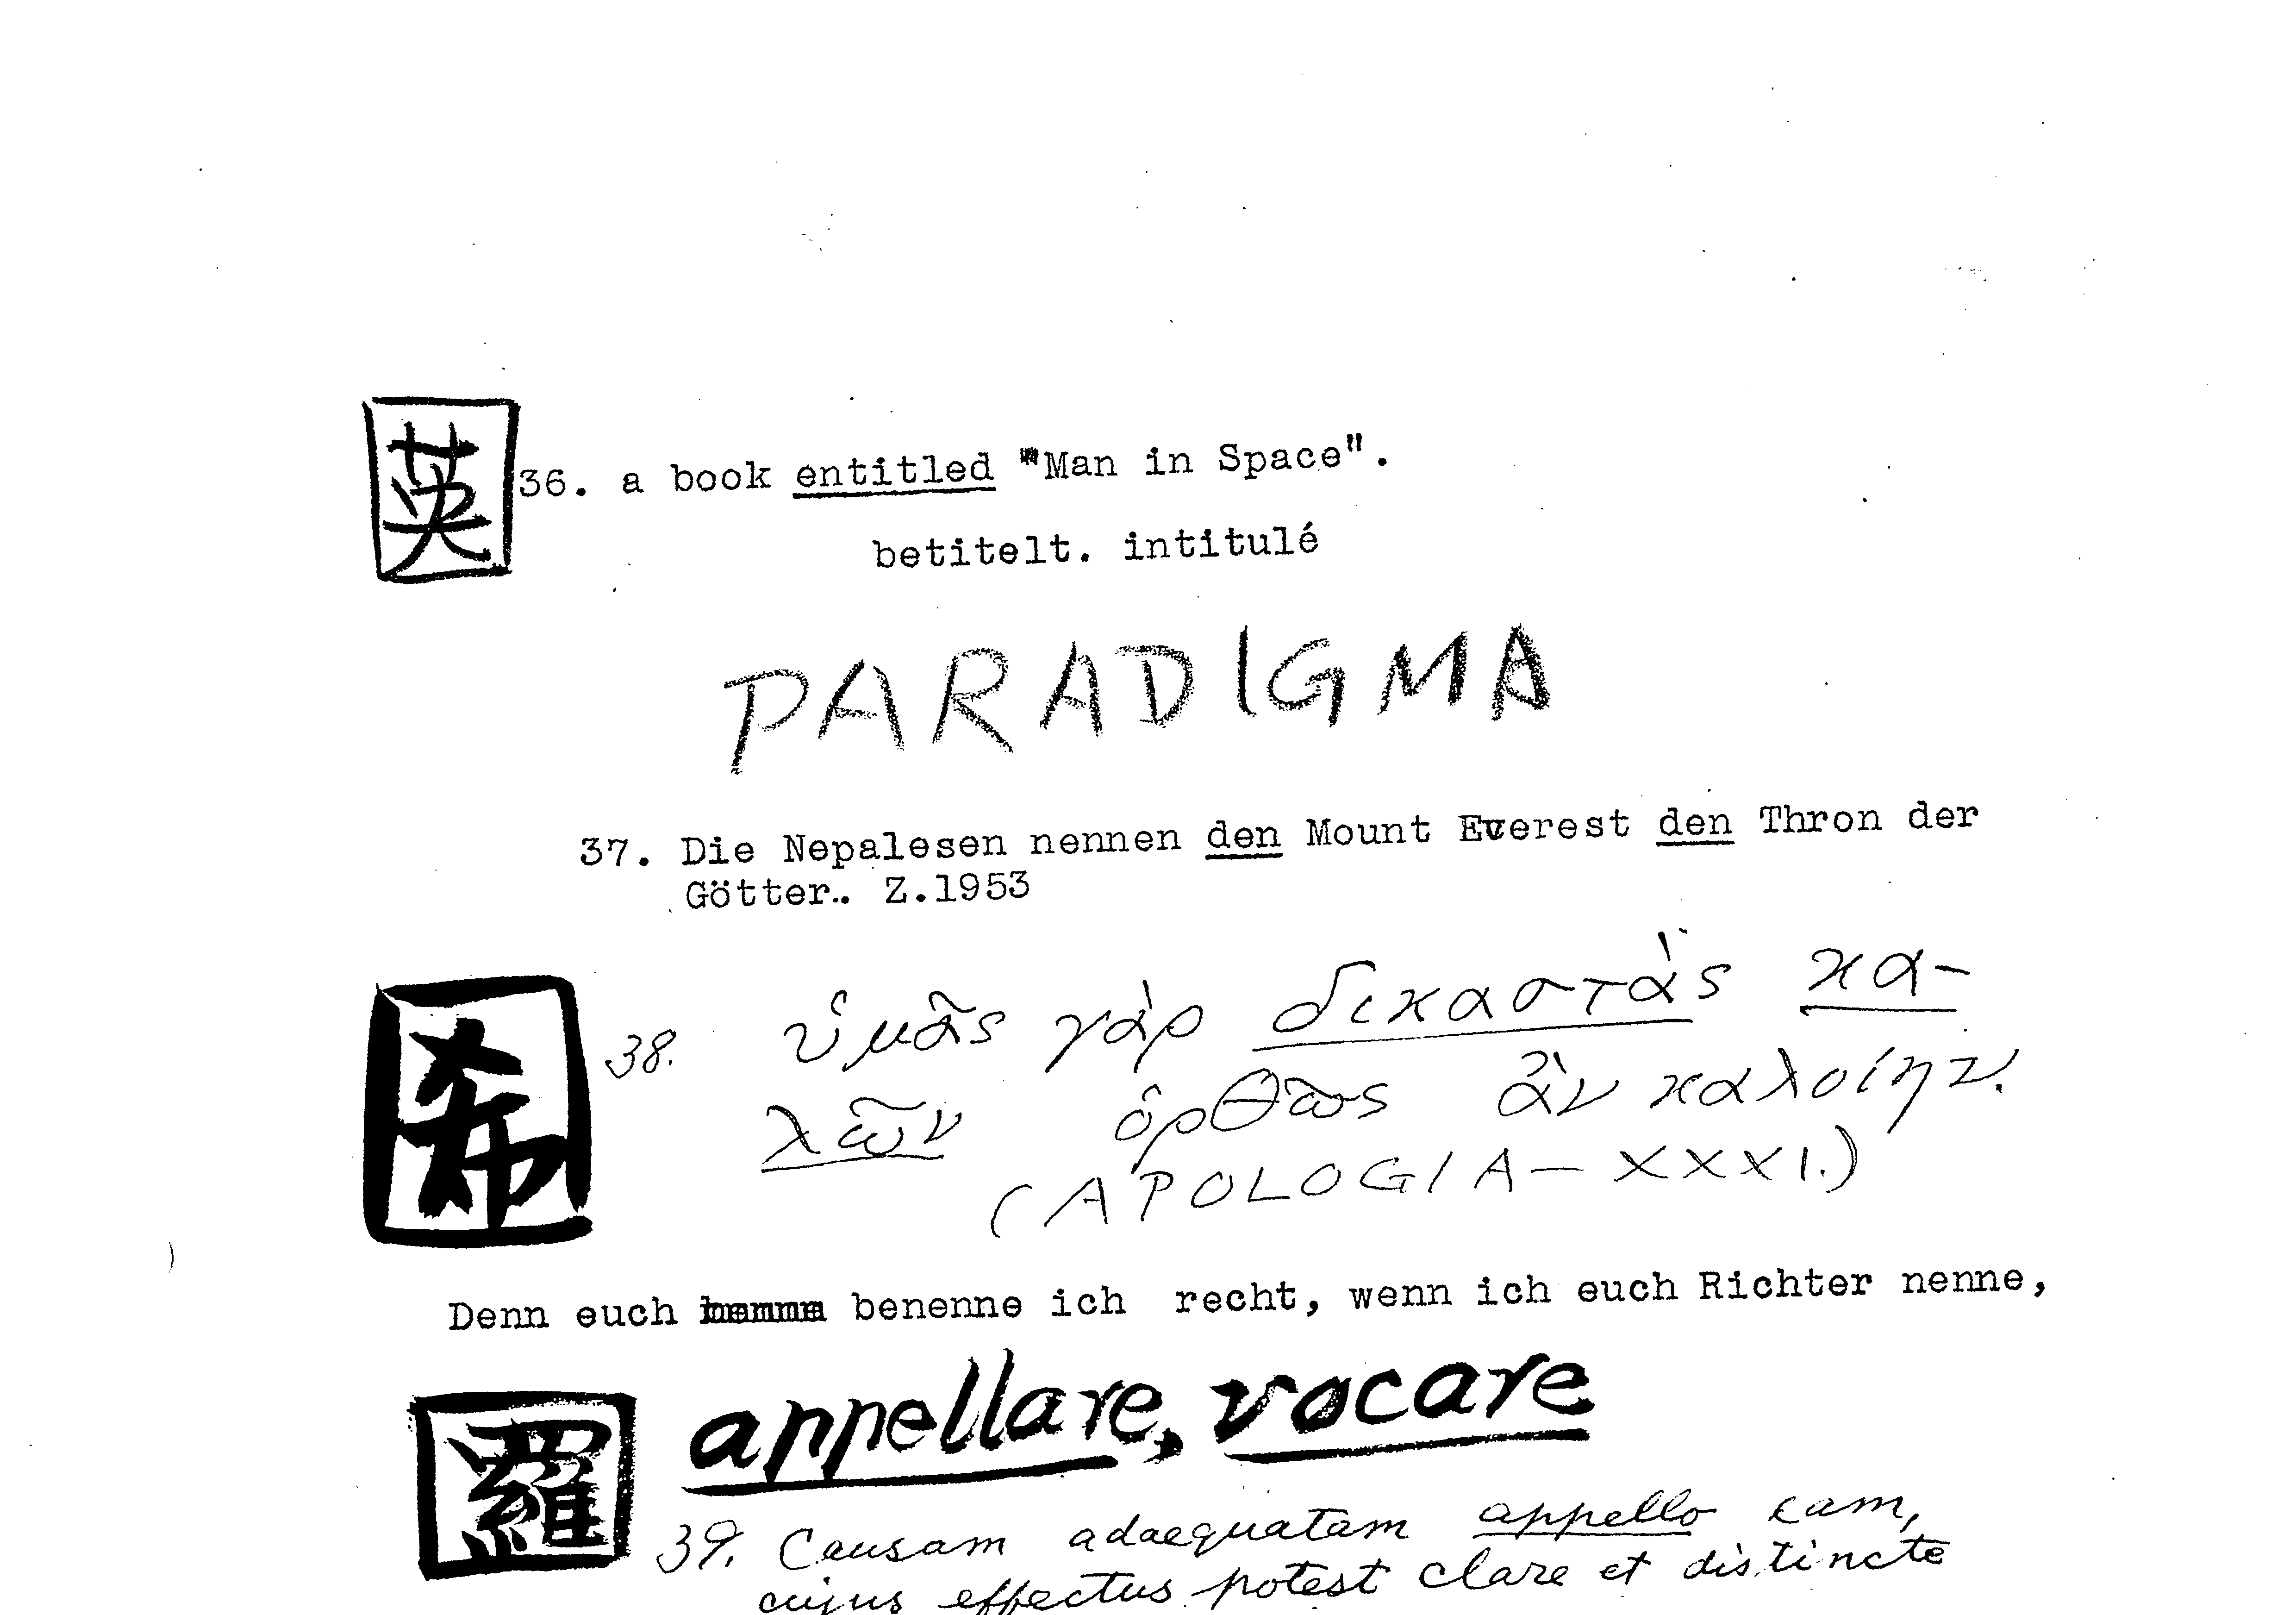 英 36. a book entitled "Man in Space".
betitelt. intitulé
PARADIGMA
37. Die Nepalesen nennen den Mount Everest den Thron der
Götter.. Z.1953
希 38. ὑμᾶς γὰρ δικαστὰς κα-
λῶν ὀρθῶς ἂν καλοίην.
(APOLOGIA—XXXI.)
Denn euch benenne ich recht, wenn ich euch Richter nenne,
羅 appellare, vocare
39. Causam adaequatam appello eam,
cujus effectus potest clare et distincte